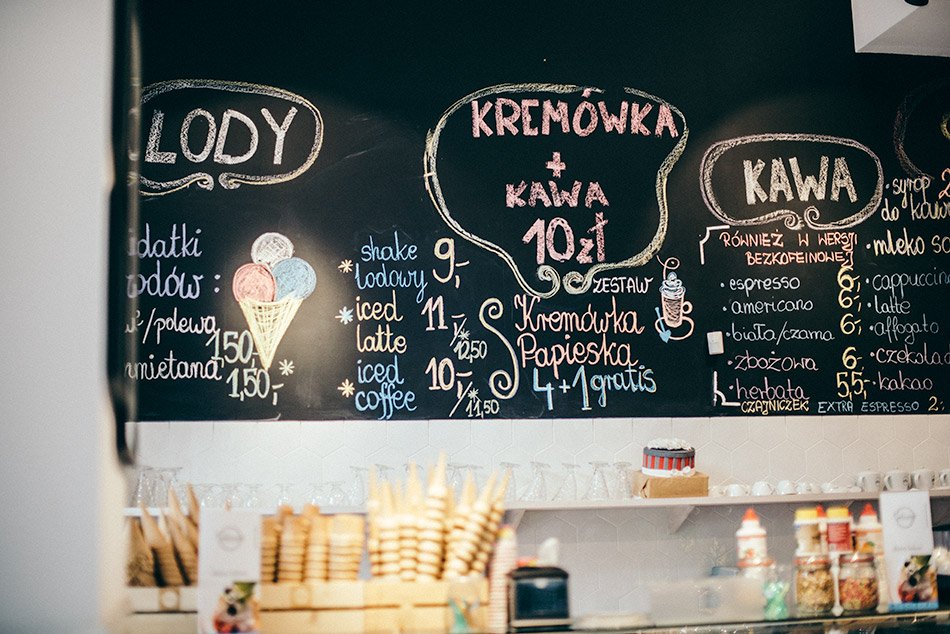 LODY
dodatki
lodów :
/polewa 1,50,-
śmietana 1,50,-
shake
lodowy 9,-
iced
latte 11,-/12,50
iced
coffee 10,-/11,50
KREMÓWKA
+
KAWA
10zł
ZESTAW
Kremówka
Papieska
4+1 gratis
KAWA
RÓWNIEŻ W WERSJI
BEZKOFEINOWEJ
• espresso 6,-
• americano 6,-
• biała/czarna 6,-
• zbożowa 6,-
• herbata 5,5,-
CZAJNICZEK
• syrop 2
do kawy
• mleko so
• cappuccin
• latte
• affogato
• czekola
• kakao
EXTRA ESPRESSO 2.